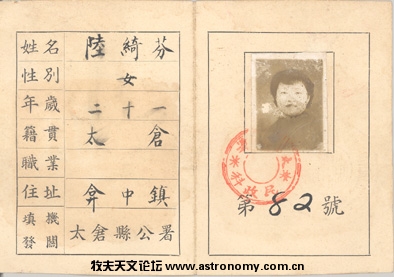 姓名 陸綺芬
性別 女
年歲 二十一
籍貫 太倉
職業
住址 弇中鎮
填發機關 太倉縣公署
民政科
第82號
牧夫天文论坛 www.astronomy.com.cn